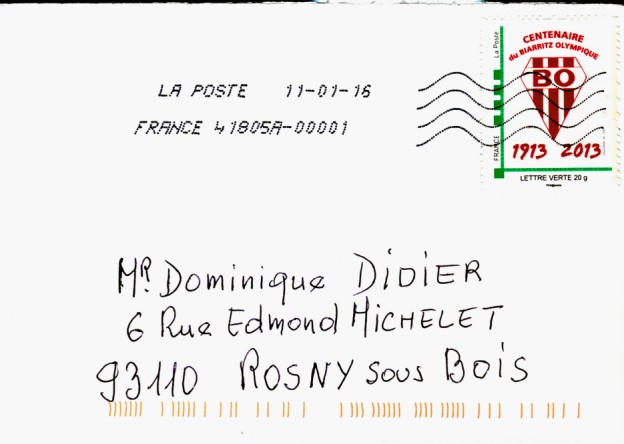 CENTENAIRE
du BIARRITZ OLYMPIQUE
La Poste
BO
FRANCE
1913 2013
LETTRE VERTE 20 g
LA POSTE 11-01-16
FRANCE 41805A-00001
MR. Dominique DIDIER
6 Rue Edmond MICHELET
93110 ROSNY sous BOIS